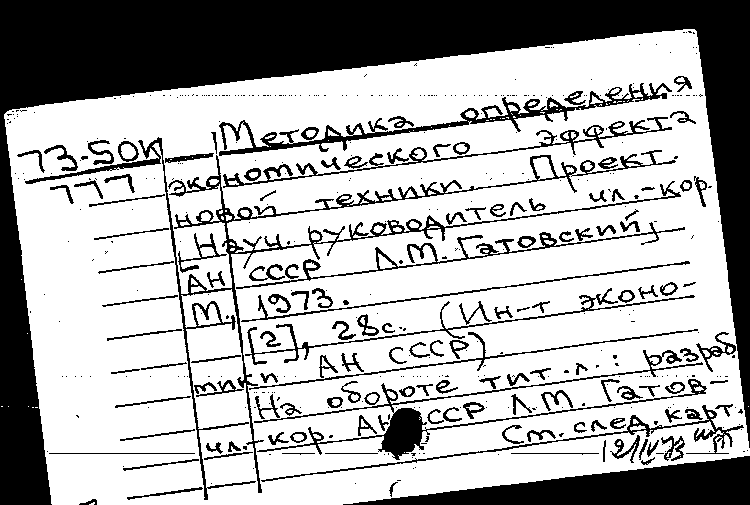 73-50К Методика определения
777 экономического эффекта
новой техники. Проект.
[Науч. руководитель чл.-кор.
АН СССР Л.М. Гатовский]
М., 1973.
[2], 28с. (Ин-т эконо-
мики АН СССР).
На обороте тит.л.: разраб
чл.-кор. АН СССР Л.М. Гатов-
См. след. карт.